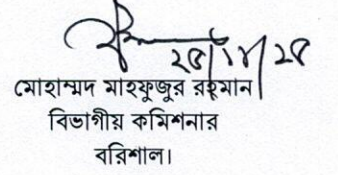 মোহাম্মদ মাহফুজুর রহমান
বিভাগীয় কমিশনার
বরিশাল।